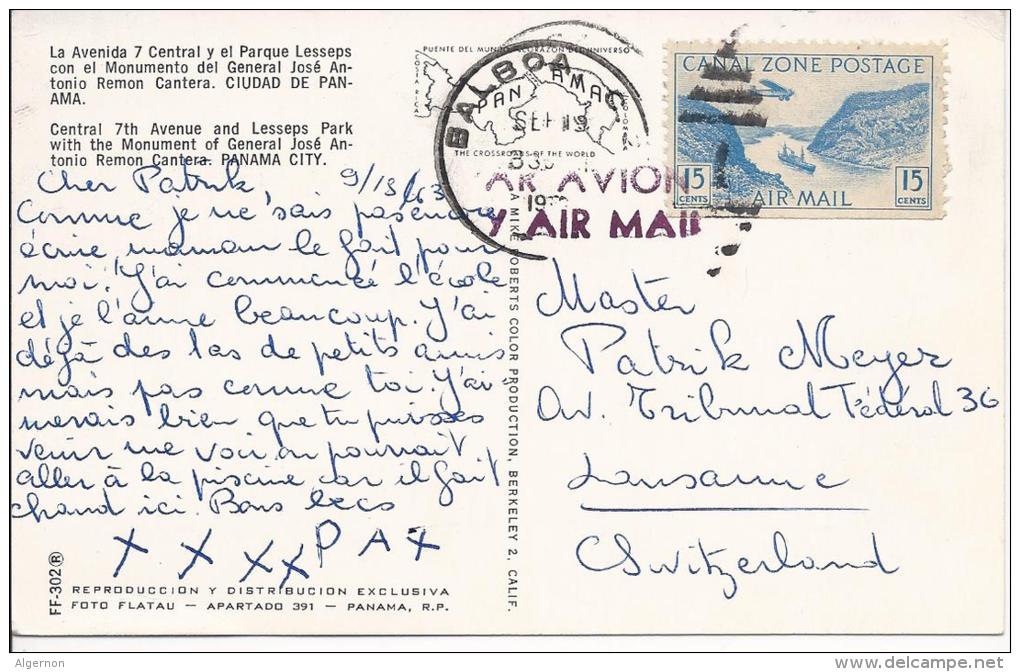 La Avenida 7 Central y el Parque Lesseps
con el Monumento del General José An-
tonio Remon Cantera. CIUDAD DE PAN-
AMA.
Central 7th Avenue and Lesseps Park
with the Monument of General José An-
tonio Remon Cantera. PANAMA CITY.
Cher Patrik, 9/19/63
Comme je ne sais pas encore
écrire, maman le fait pour
moi. J'ai commencé l'école
et je l'aime beaucoup. J'ai
déjà des tas de petits amis
mais pas comme toi. J'ai-
merais bien que tu puisses
venir me voir, on pourrait
aller à la piscine car il fait
chaud ici. Bons becs
X X XX PAX
FF-302 ®
REPRODUCCION Y DISTRIBUCION EXCLUSIVA
FOTO FLATAU — APARTADO 391 — PANAMA, R.P.
A MIKE ROBERTS COLOR PRODUCTION, BERKELEY 2, CALIF.
PUENTE DEL MUNDO CORAZON DEL UNIVERSO
COSTA RICA
PANAMA
COLOMBIA
THE CROSSROADS OF THE WORLD
BALBOA
SEP 19
PAR AVION
Y AIR MAIL
CANAL ZONE POSTAGE
15 CENTS AIR MAIL 15 CENTS
Master
Patrik Meyer
Av. Tribunal Fédéral 36
Lausanne
Switzerland
Algernon
delcampe.net